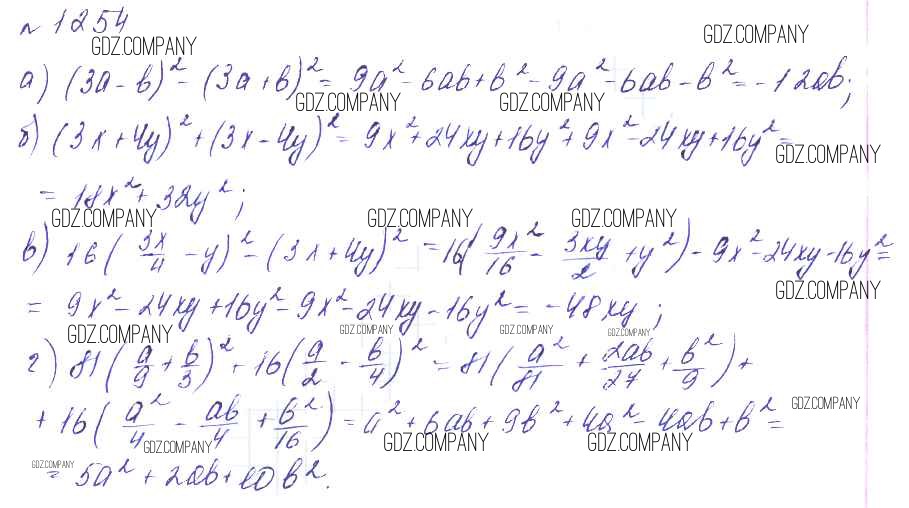 №1254
GDZ.COMPANY GDZ.COMPANY
а) (3a - b)² - (3a + b)² = 9a² - 6ab + b² - 9a² - 6ab - b² = -12ab;
GDZ.COMPANY GDZ.COMPANY
б) (3x + 4y)² + (3x - 4y)² = 9x² + 24xy + 16y² + 9x² - 24xy + 16y² =
GDZ.COMPANY
= 18x² + 32y²;
GDZ.COMPANY GDZ.COMPANY GDZ.COMPANY
в) 16(3x/4 - y)² - (3x + 4y)² = 16(9x²/16 - 3xy/2 + y²) - 9x² - 24xy - 16y² =
GDZ.COMPANY
= 9x² - 24xy + 16y² - 9x² - 24xy - 16y² = -48xy;
GDZ.COMPANY GDZ.COMPANY GDZ.COMPANY GDZ.COMPANY
г) 81(a/9 + b/3)² + 16(a/2 - b/4)² = 81(a²/81 + 2ab/27 + b²/9) +
+ 16(a²/4 - ab/4 + b²/16) = a² + 6ab + 9b² + 4a² - 4ab + b² =
GDZ.COMPANY
GDZ.COMPANY GDZ.COMPANY GDZ.COMPANY
GDZ.COMPANY
= 5a² + 2ab + 10b².